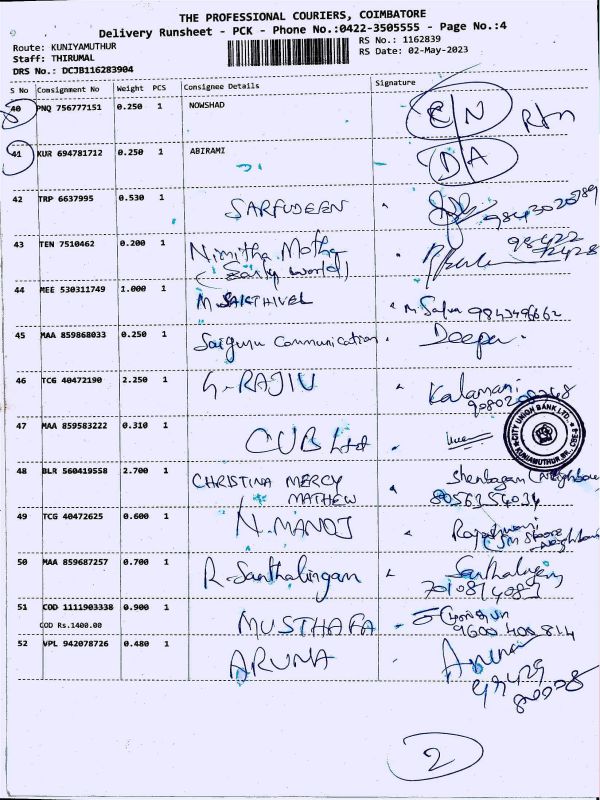 THE PROFESSIONAL COURIERS, COIMBATORE
Delivery Runsheet - PCK - Phone No.:0422-3505555 - Page No.:4
Route: KUNIYAMUTHUR
RS No.: 1162839
Staff: THIRUMAL
RS Date: 02-May-2023
DRS No.: DCJB116283904
S No Consignment No Weight PCS Consignee Details Signature
40 PNQ 756777151 0.250 1 NOWSHAD C/N Rtn
41 KUR 694781712 0.250 1 ABIRAMI D/A
42 TRP 6637995 0.530 1 SARFUDEEN
43 TEN 7510462 0.200 1 Nimitha Motha 98422
44 MEE 530311749 1.000 1 M. SAKTHIVEL
45 MAA 859868033 0.250 1 Saiguru Communication. Deepa.
46 TCG 40472190 2.250 1 G-RAJIV Kalamani
47 MAA 859583222 0.310 1 CUB Ltd
CITY UNION BANK LTD.
48 BLR 560419558 2.700 1 CHRISTINA MERCY
MATHEW 8056354034
49 TCG 40472625 0.600 1 N. MANOJ
50 MAA 859687257 0.700 1 R-Santhalingam
51 COD 1111903338 0.900 1 MUSTHAFA
COD Rs.1400.00 9600 400 814
52 VPL 942078726 0.480 1 ARUNA Aruna
2